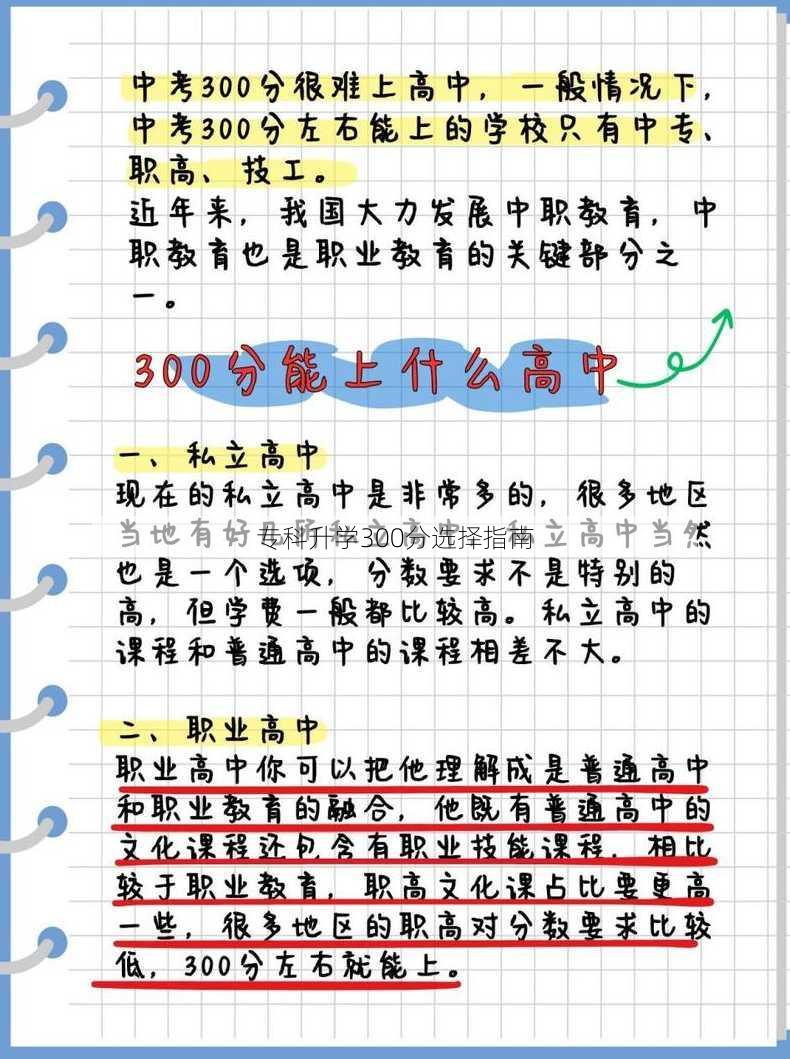 中考300分很难上高中，一般情况下，
中考300分左右能上的学校只有中专、
职高、技工。
近年来，我国大力发展中职教育，中
职教育也是职业教育的关键部分之
一。
300分能上什么高中
一、私立高中
现在的私立高中是非常多的，很多地区
当地有好几所私立高中，私立高中当然
专科升学300分选择指南
也是一个选项，分数要求不是特别的
高，但学费一般都比较高。私立高中的
课程和普通高中的课程相差不大。
二、职业高中
职业高中你可以把他理解成是普通高中
和职业教育的融合，他既有普通高中的
文化课程还包含有职业技能课程，相比
较于职业教育，职高文化课占比要更高
一些，很多地区的职高对分数要求比较
低，300分左右就能上。